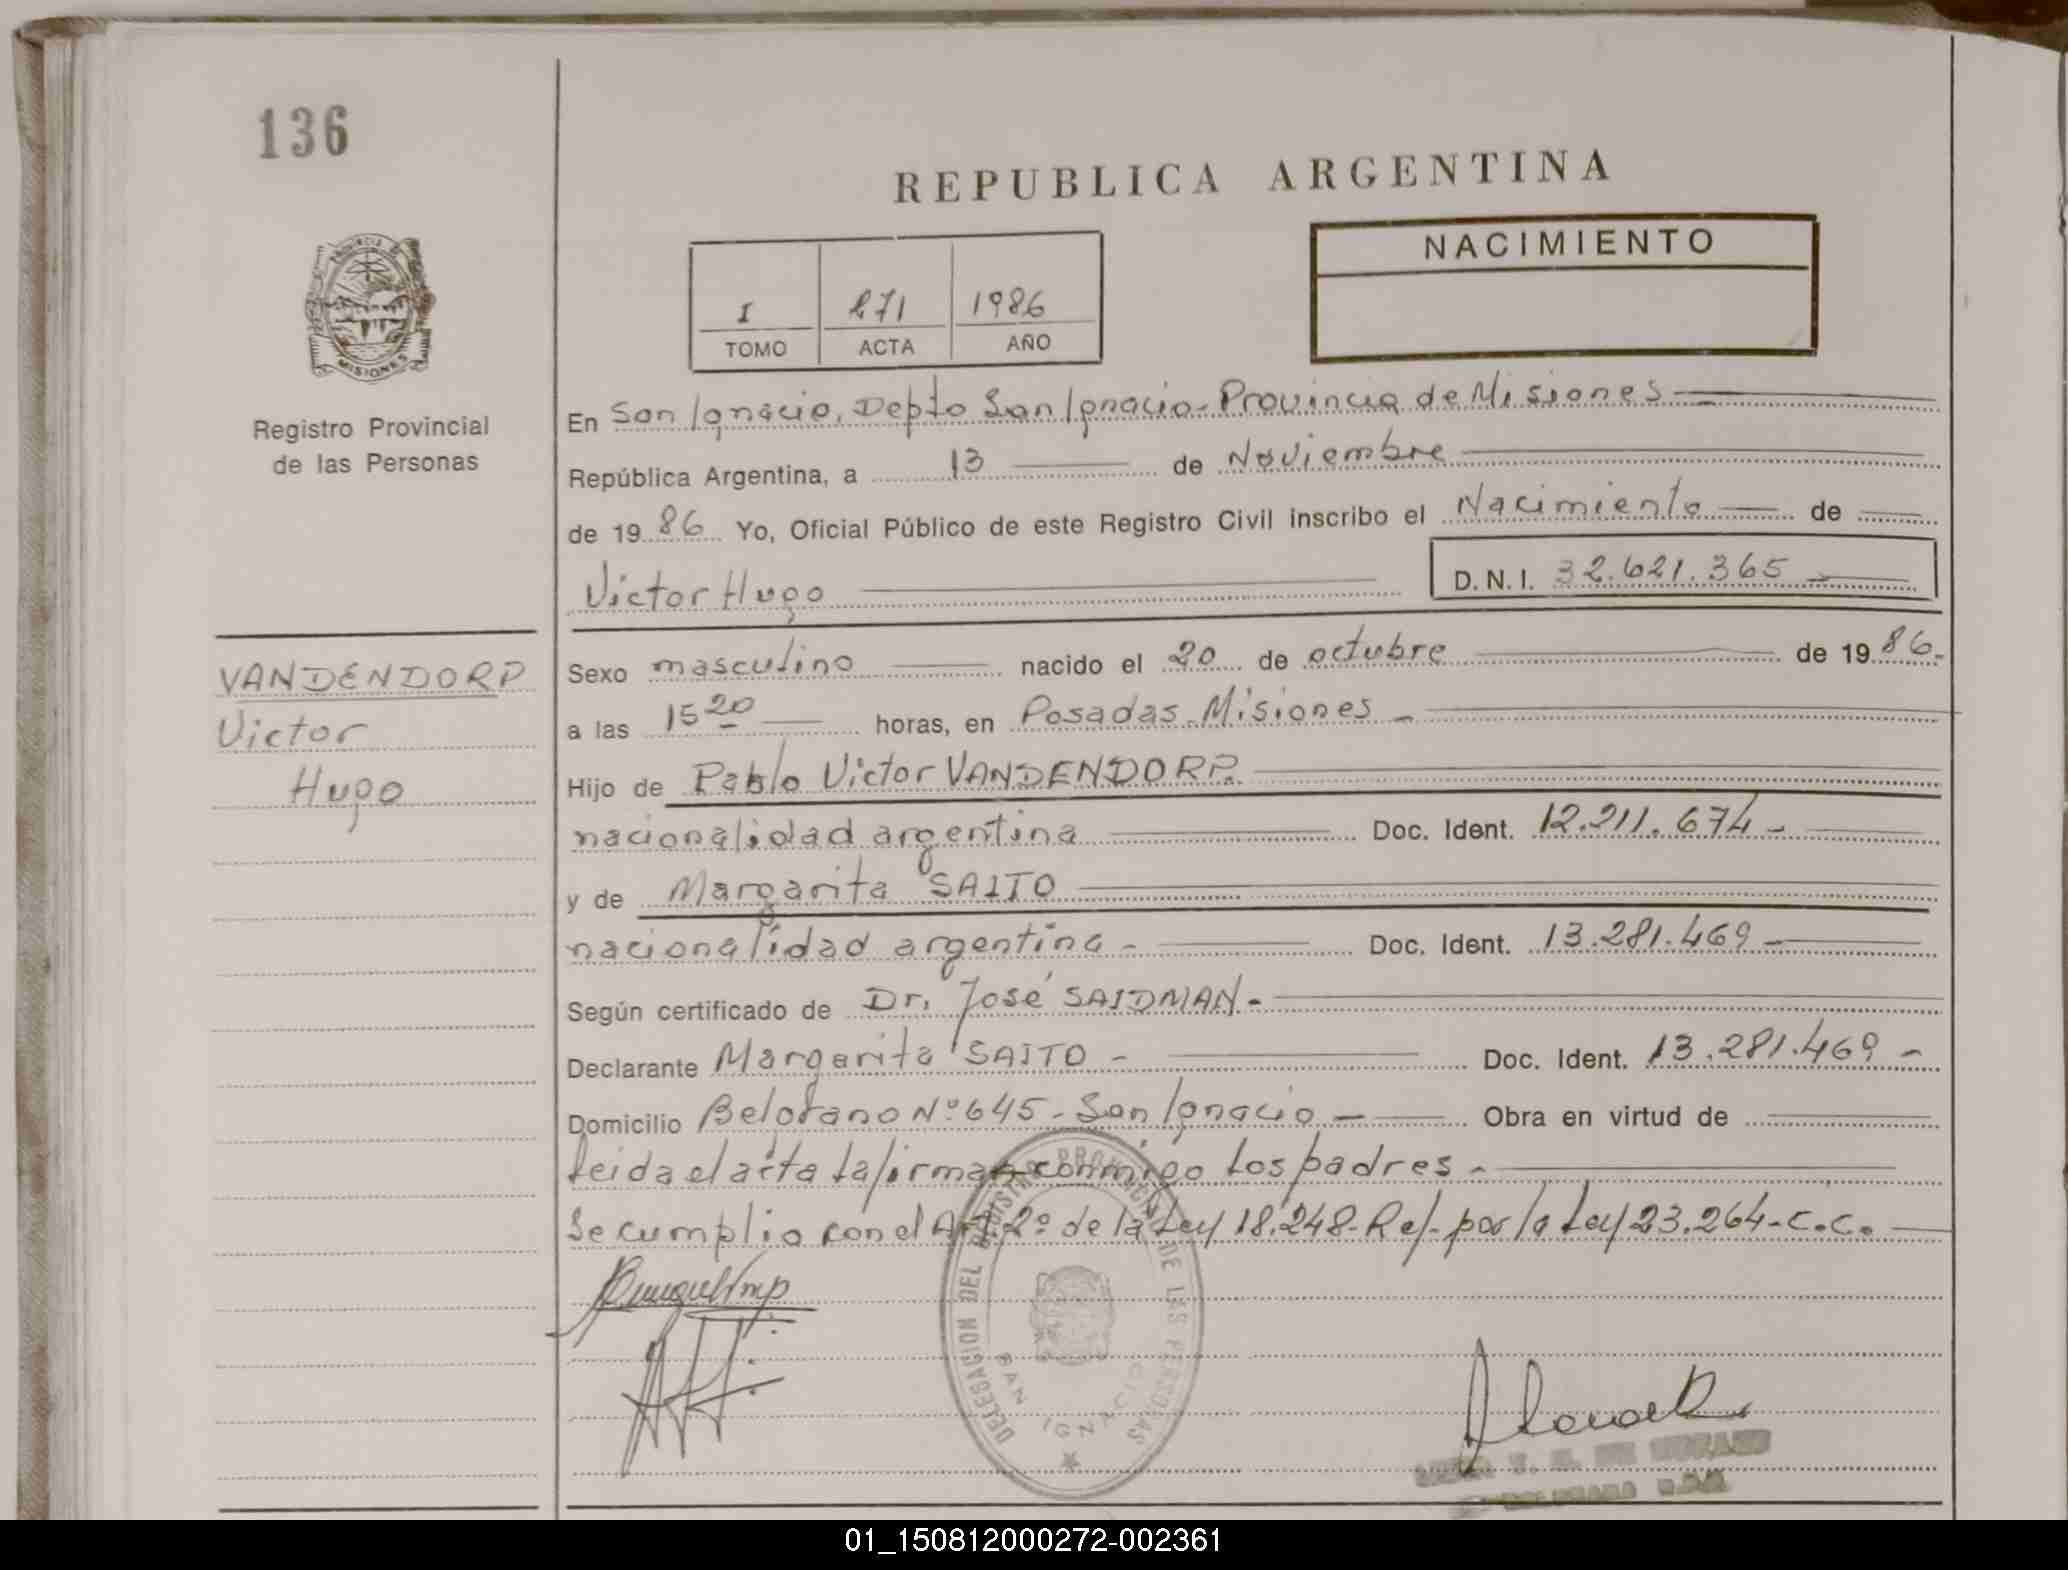 136
REPUBLICA ARGENTINA
NACIMIENTO
I 271 1986
TOMO ACTA AÑO
PROVINCIA DE
MISIONES
Registro Provincial
de las Personas
En San Ignacio, Depto San Ignacio - Provincia de Misiones
República Argentina, a 13 de Noviembre
de 1986 Yo, Oficial Público de este Registro Civil inscribo el Nacimiento de
Victor Hugo D.N.I. 32.621.365
VANDENDORP
Victor
Hugo
Sexo masculino nacido el 20 de octubre de 1986.
a las 15 20 horas, en Posadas - Misiones -
Hijo de Pablo Victor VANDENDORP.
nacionalidad argentina Doc. Ident. 12.211.674 -
y de Margarita SAITO
nacionalidad argentina - Doc. Ident. 13.281.469 -
Según certificado de Dr. José SAIDMAN -
Declarante Margarita SAITO - Doc. Ident. 13.281.469 -
Domicilio Belgrano Nº 645 - San Ignacio - Obra en virtud de
Leida el acta la firman conmigo los padres -
Se cumplio con el Art. 2º de la Ley 18.248 - Ref. por la Ley 23.264 - C.C.
DELEGACION DEL REGISTRO PROVINCIAL DE LAS PERSONAS
SAN IGNACIO
01_150812000272-002361